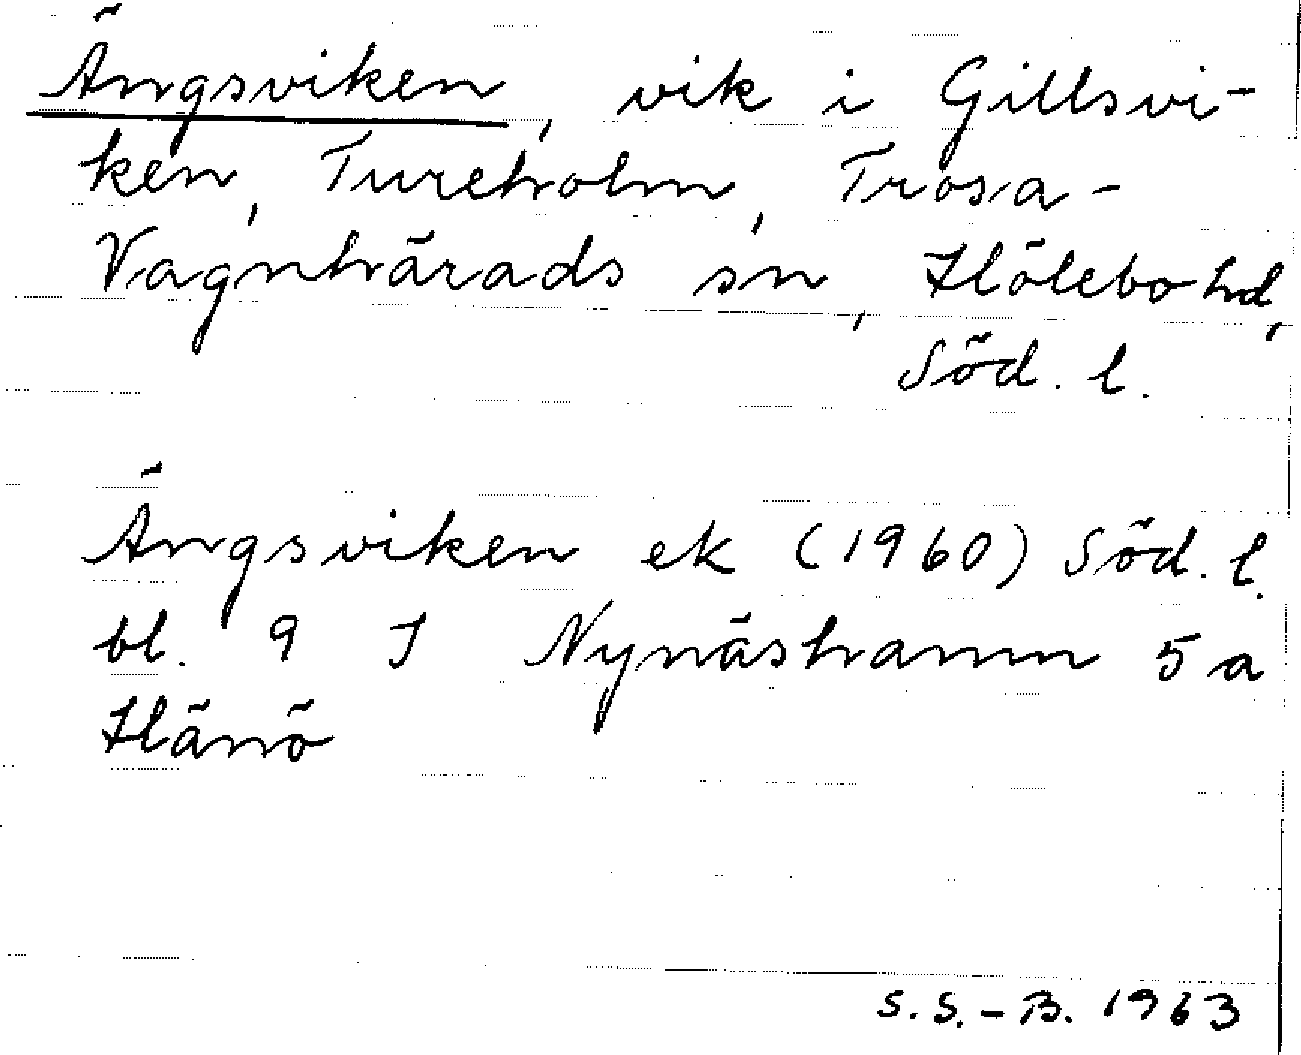 Ängsviken, vik i Gillsvi-
ken, Tureholm, Trosa-
Vagnhärads sn, Hölebo hd,
Söd. l.
Ängsviken ek (1960) Söd. l.
bl. 9 I Nynäshamn 5 a
Hänö
S. S.-B. 1963